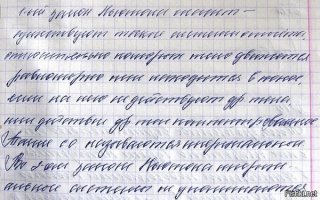 1-ый закон Ньютона гласит –
существуют такие системы отсчёта,
относительно которых тело движется
равномерно или находится в покое,
если на него не действуют др тела,
или действия др тел компенсированы
Такие со называются инерциальной
Во 2 ом законе Ньютона инерци
альные системы не упоминаются
Fishki.net